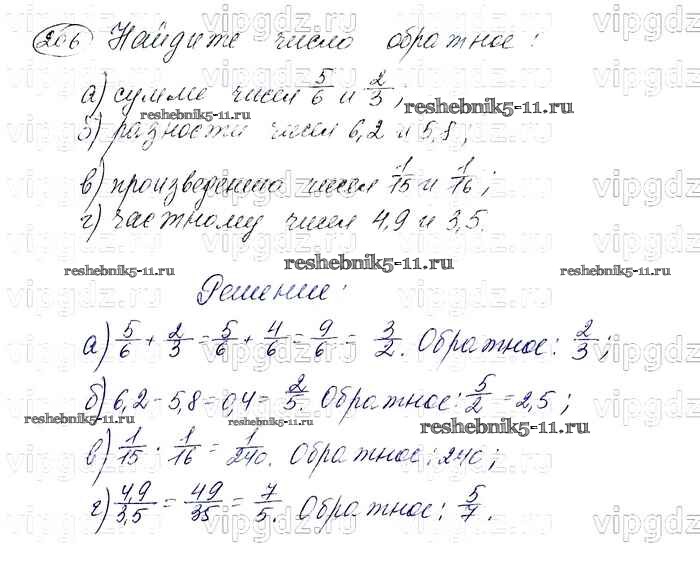 266 Найдите число обратное:
а) сумме чисел 5/6 и 2/3;
б) разности чисел 6,2 и 5,8;
в) произведению чисел 1/15 и 1/16;
г) частному чисел 4,9 и 3,5.
Решение:
а) 5/6 + 2/3 = 5/6 + 4/6 = 9/6 = 3/2. Обратное: 2/3;
б) 6,2 - 5,8 = 0,4 = 2/5. Обратное: 5/2 = 2,5;
в) 1/15 · 1/16 = 1/240. Обратное: 240;
г) 4,9/3,5 = 49/35 = 7/5. Обратное: 5/7.
reshebnik5-11.ru
reshebnik5-11.ru
reshebnik5-11.ru
reshebnik5-11.ru
reshebnik5-11.ru
reshebnik5-11.ru
reshebnik5-11.ru
vipgdz